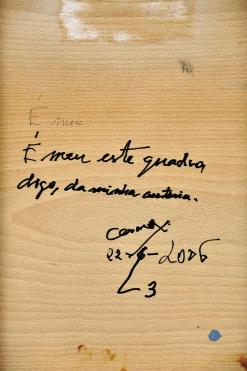 É meu
É meu este quadro
digo, da minha autoria.
22-6-2006
3